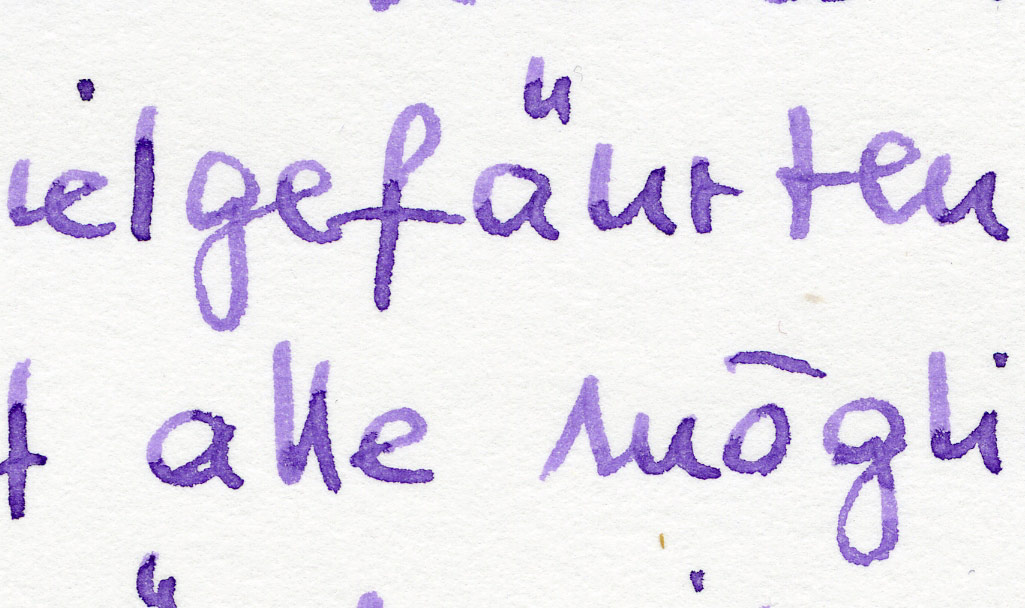 ielgefährten
t alle mögli